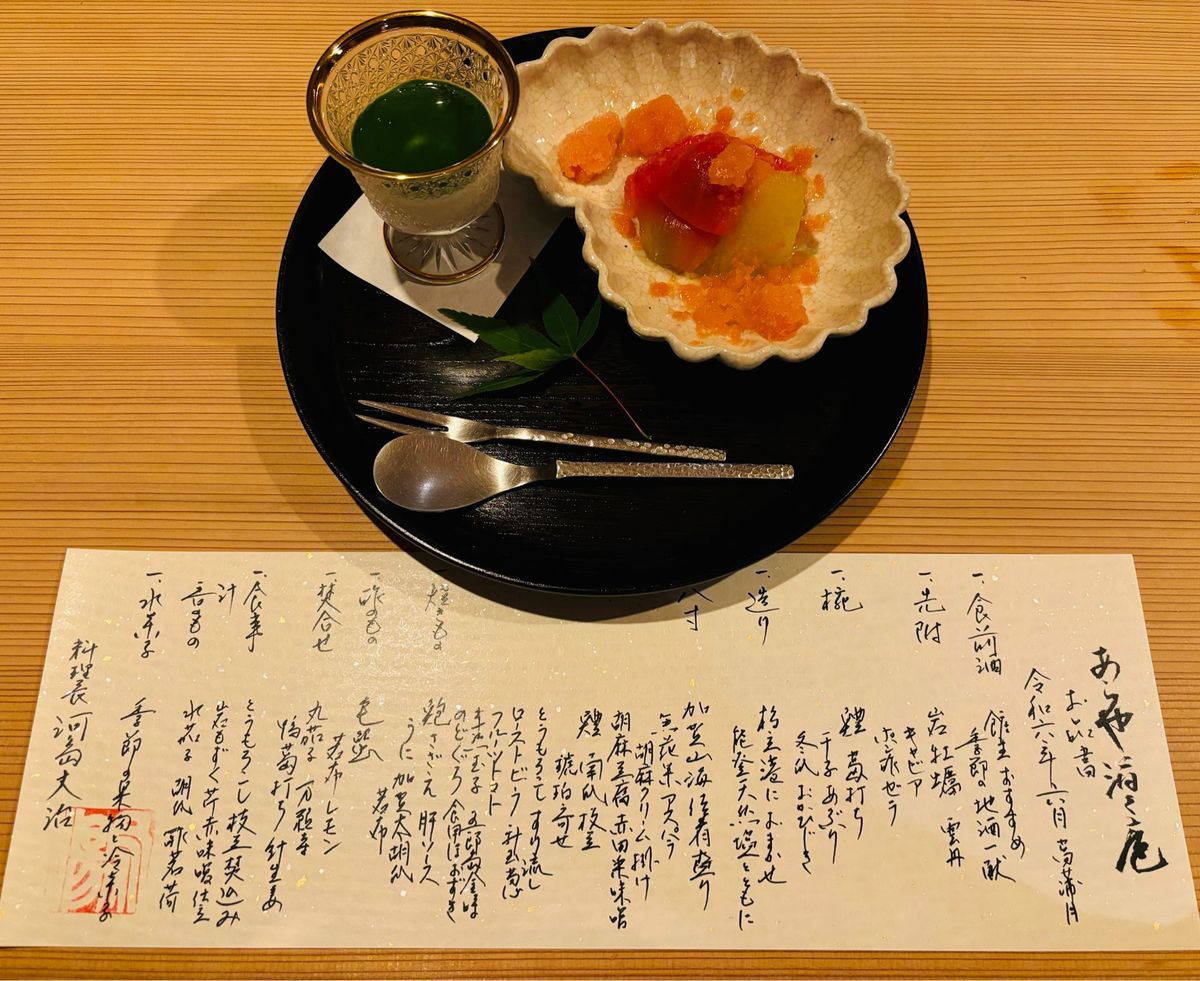 あらや滔々庵
お品書
令和六年六月 菖蒲月
一、食前酒 館主おすすめ
季節の地酒一献
一、先附 岩牡蠣 雲丹
キャビア
ポン酢ゼリー
一、椀 鱧葛打ち
千子あぶり
冬瓜 おかひじき
一、造り 橋立港におまかせ
能登天然塩とともに
八寸 加賀山海 盛り
無花果 アスパラ
胡麻クリーム掛け
胡麻豆腐 赤田楽味噌
鱧 南瓜 枝豆
琥珀寄せ
とうもろこし すり流し
ローストビーフ 針玉葱
フルーツトマト
玉子 五郎島金時
のどぐろ 食用ほおずき
焼きもの 鮑 さざえ 肝ソース
うに 加賀太胡瓜
若布
一、酢のもの 毛蟹
若布 レモン
一、焚合せ 丸茄子 万願寺
鴨葛打ち 針生姜
一、食事 とうもろこし 枝豆 焚込み
汁 岩もずく 芹 赤味噌仕立
香のもの 水茄子 胡瓜 酢茗荷
一、水菓子 季節の果物と冷菓子
料理長 河島大治